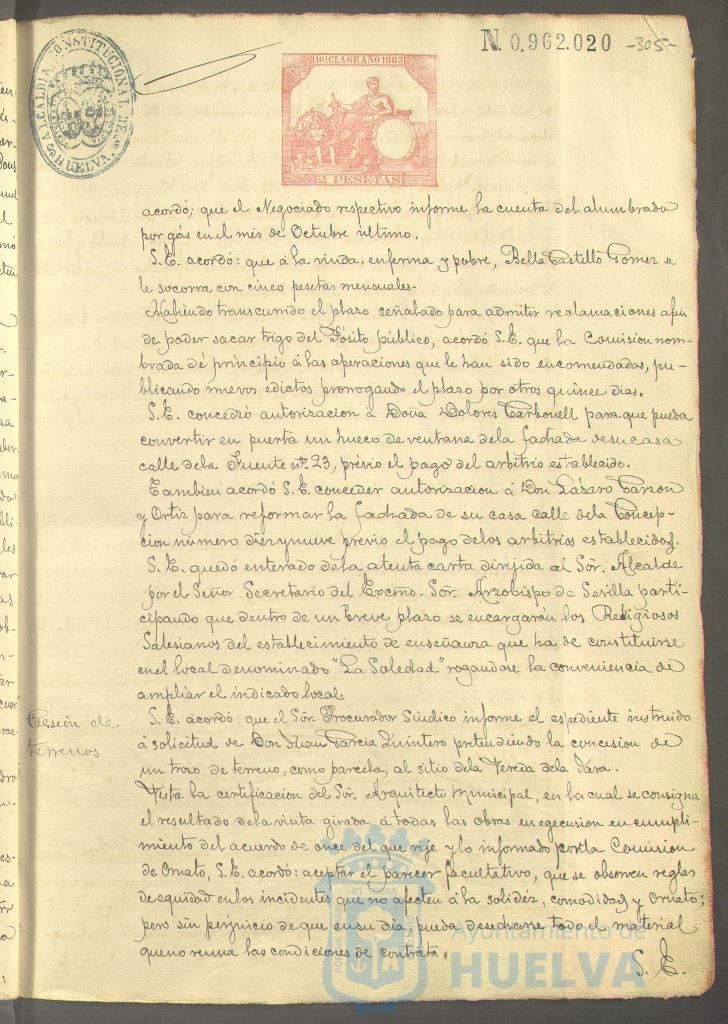 ALCALDIA CONSTITUCIONAL DE HUELVA.
10ª CLASE AÑO 1883
2 PESETAS
N. 0.902.020 -305-
acordó; que el Negociado respectivo informe la cuenta del alumbrado
por gás en el mes de Octubre último.
S.E. acordó: que á la viuda, enferma y pobre, Bella Castello Gomez se
le socorra con cinco pesetas mensuales.
Habiendo transcurrido el plazo señalado para admitir reclamaciones afin
de poder sacar trigo del Pósito público, acordó S.E. que la Comision nom-
brada dé principio á las operaciones que le han sido encomendadas, pu-
blicando nuevos edictos prorrogando el plazo por otros quince dias.
S.E. concedió autorizacion á Doña Dolores Carbonell para que pueda
convertir en puerta un hueco de ventana dela fachada desucasa
calle dela Fuente nº 23, prévio el pago del arbitrio establecido.
Tambien acordó S.E. conceder autorizacion á Don Lázaro Garzon
y Ortiz para reformar la fachada de su casa calle dela Concep-
cion número diezynueve previo el pago delos arbitrios establecidos.
S.E. quedó enterado dela atenta carta dirijida al Sór. Alcalde
por el Señor Secretario del Excmo. Sór. Arzobispo de Sevilla parti-
cipando que dentro de un breve plazo se encargarán los Religiosos
Salesianos del establecimiento de enseñanza que ha de constituirse
enel local denominado "La Soledad" rogandose la conveniencia de
ampliar el indicado local.
Cesión de
terrenos
S.E. acordó: que el Sór. Procurador Síndico informe el espediente instruido
á solicitud de Don Juan Garcia Quintero pretendiendo la concesion de
un trozo de terreno, como parcela, al sitio dela Vereda dela Jara.
Vista la certificacion del Sór. Arquitecto Municipal, en la cual se consigna
el resultado dela visita girada á todas las obras en egecusion en cumpli-
miento del acuerdo de once del que rije y lo informado porla Comision
de Ornato, S.E. acordó: aceptar el parecer facultativo, que se observen reglas
de equidad enlos incidentes que no afecten á la solidéz, comodidad y Ornato;
pero sin perjuicio de que ensu dia, pueda desecharse todo el material
queno reuna las condiciones de contrata.
S. E.
Ayuntamiento de
HUELVA